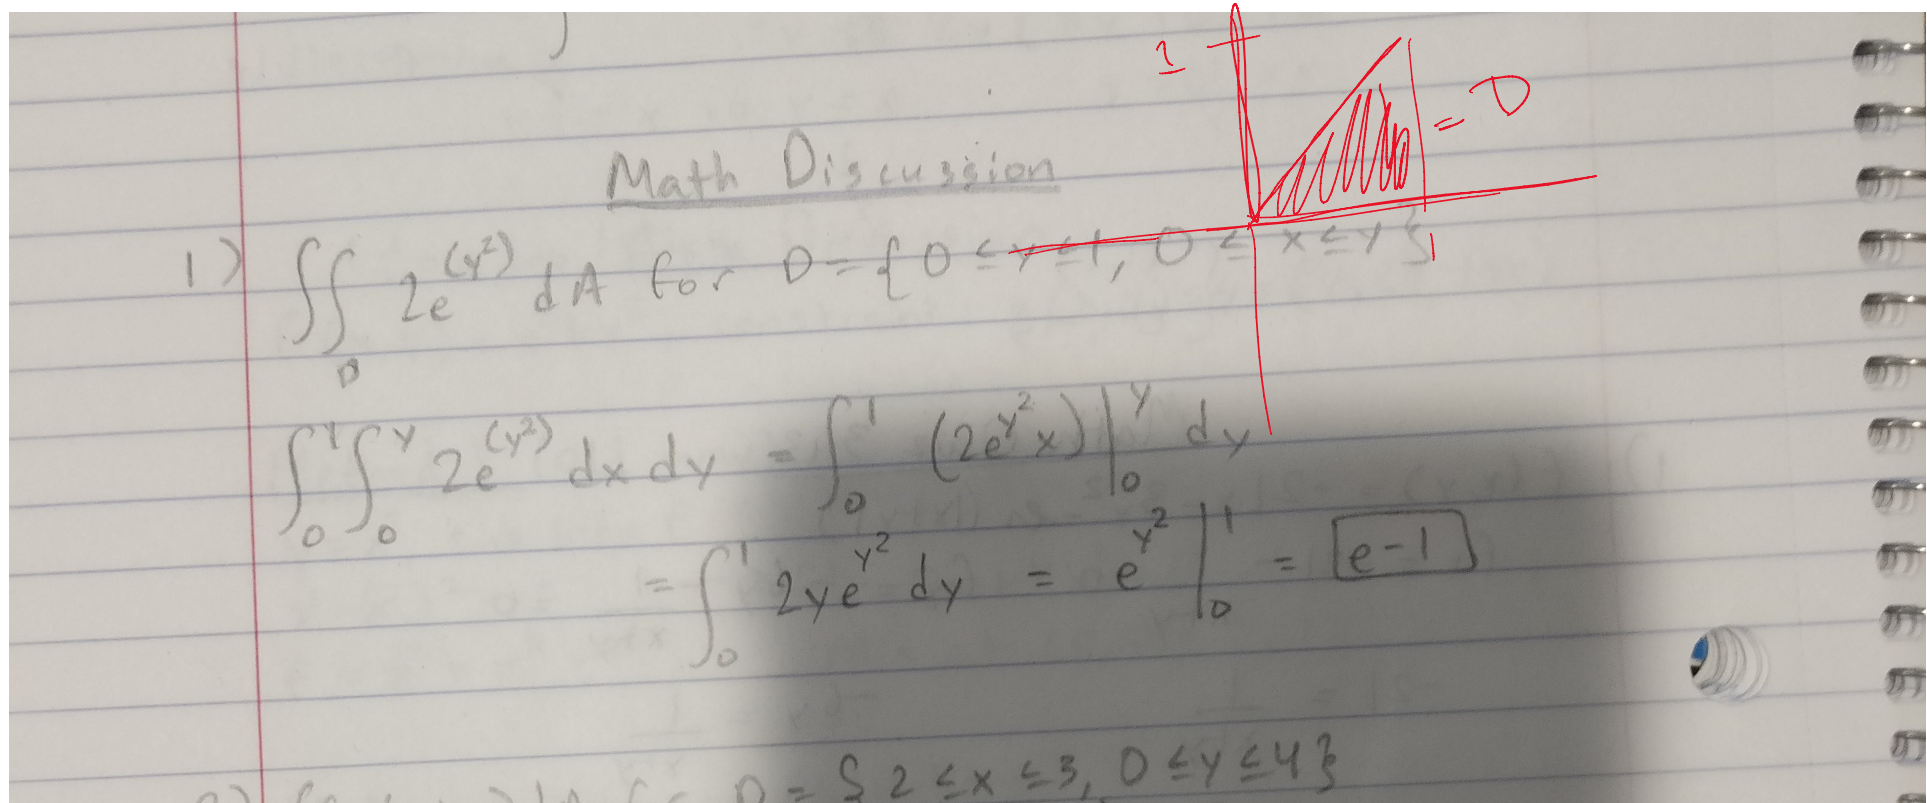 1
= D
Math Discussion
1) ∬_D 2e^(y²) dA for D = {0 ≤ y ≤ 1, 0 ≤ x ≤ y}
1
∫₀¹ ∫₀^y 2e^(y²) dx dy = ∫₀¹ (2e^y² x)|₀^y dy
= ∫₀¹ 2ye^y² dy = e^y² |₀¹ = e-1
D = {2 ≤ x ≤ 3, 0 ≤ y ≤ 4}